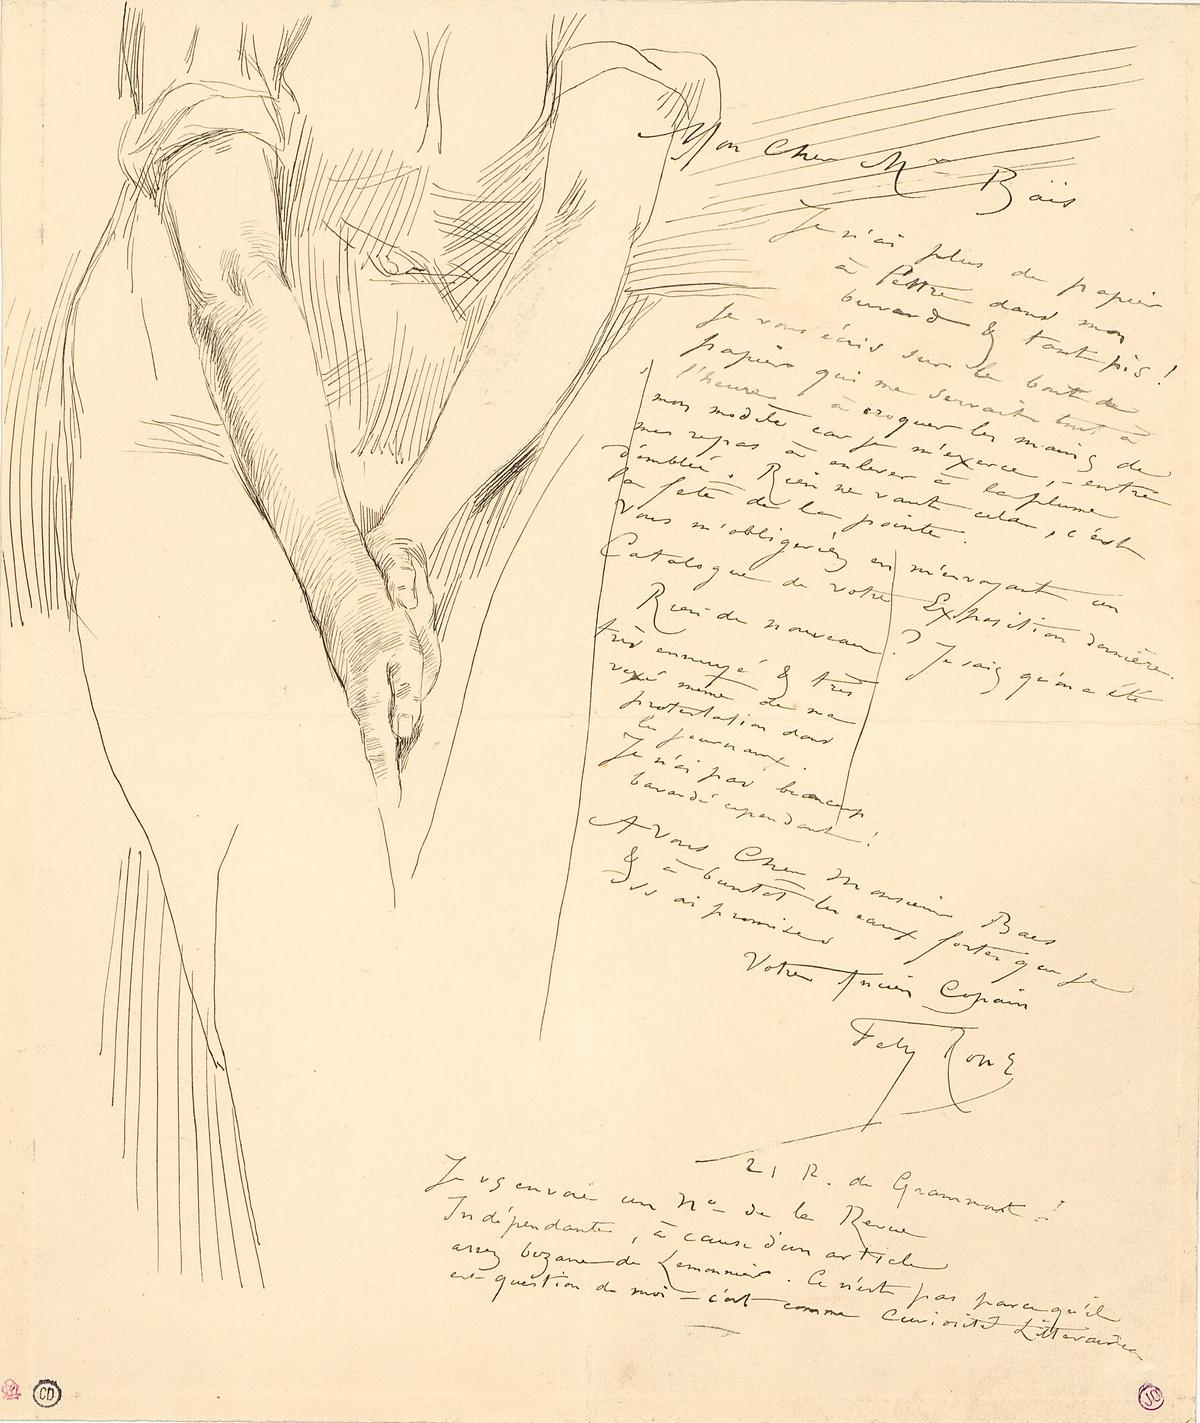 Mon Cher Mr Baës
Je n'ai plus de papier
à lettre dans mon
buvard & tant pis !
Je vous écris sur le bout de
papier qui me servait tout à
l'heure à croquer les mains de
mon modèle car je m'exerce, entre
mes repas à enlever à la plume
d'emblée. Rien ne vaut cela, c'est
la fête de la pointe.
Vous m'obligeriez en m'envoyant un
Catalogue de votre Exposition dernière.
Rien de nouveau ? Je sais qu'on a été
très ennuyé & très
vexé même de ma
protestation dans
les journaux.
Je n'ai pas beaucoup
bavardé cependant !
A Vous Cher Monsieur Baes
& à bientôt les eaux fortes que je
vs ai promises
Votre Ancien Copain
Fély Rops
21 R. de Grammont !
Je vs envoie un No de la Revue
Indépendante, à cause d'un article
assez bizarre de Lemonnier. Ce n'est pas parcequ'il
est question de moi – c'est comme curiosité Littéraire
CD
JO